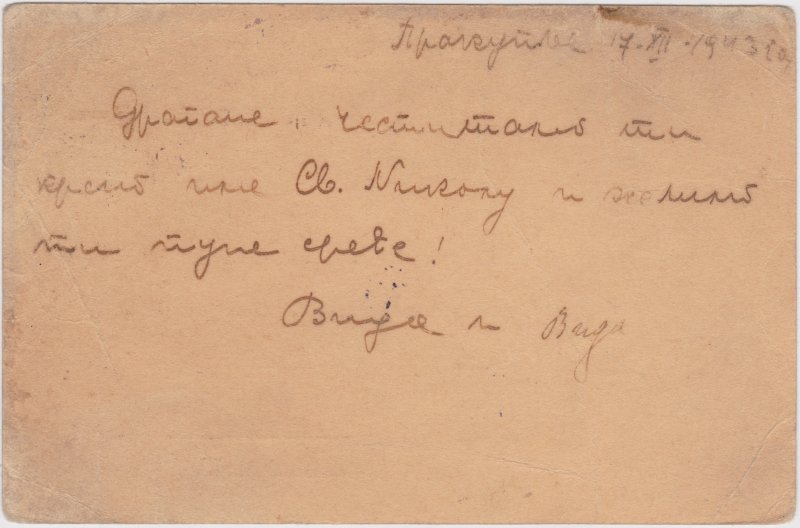 Прокупље 17-XII-1943 год
Драгане, честитамо ти
крсно име Св. Николу и желимо
ти пуно среће!
Вида и Вида